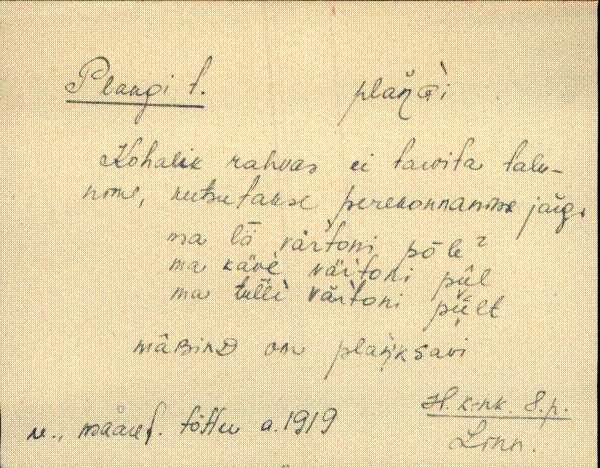 Plangi t. plaŋGi
Kohalik rahvas ei tarvita talu-
nime, kutsutakse perekonnanime järgi
ma lä värtoni põle?
ma käve värtoni piil
ma tulli värtoni piilt
mäBinD om plaŋksavi
H. k-nk. S.p.
tõttu a. 1919
Lonn.